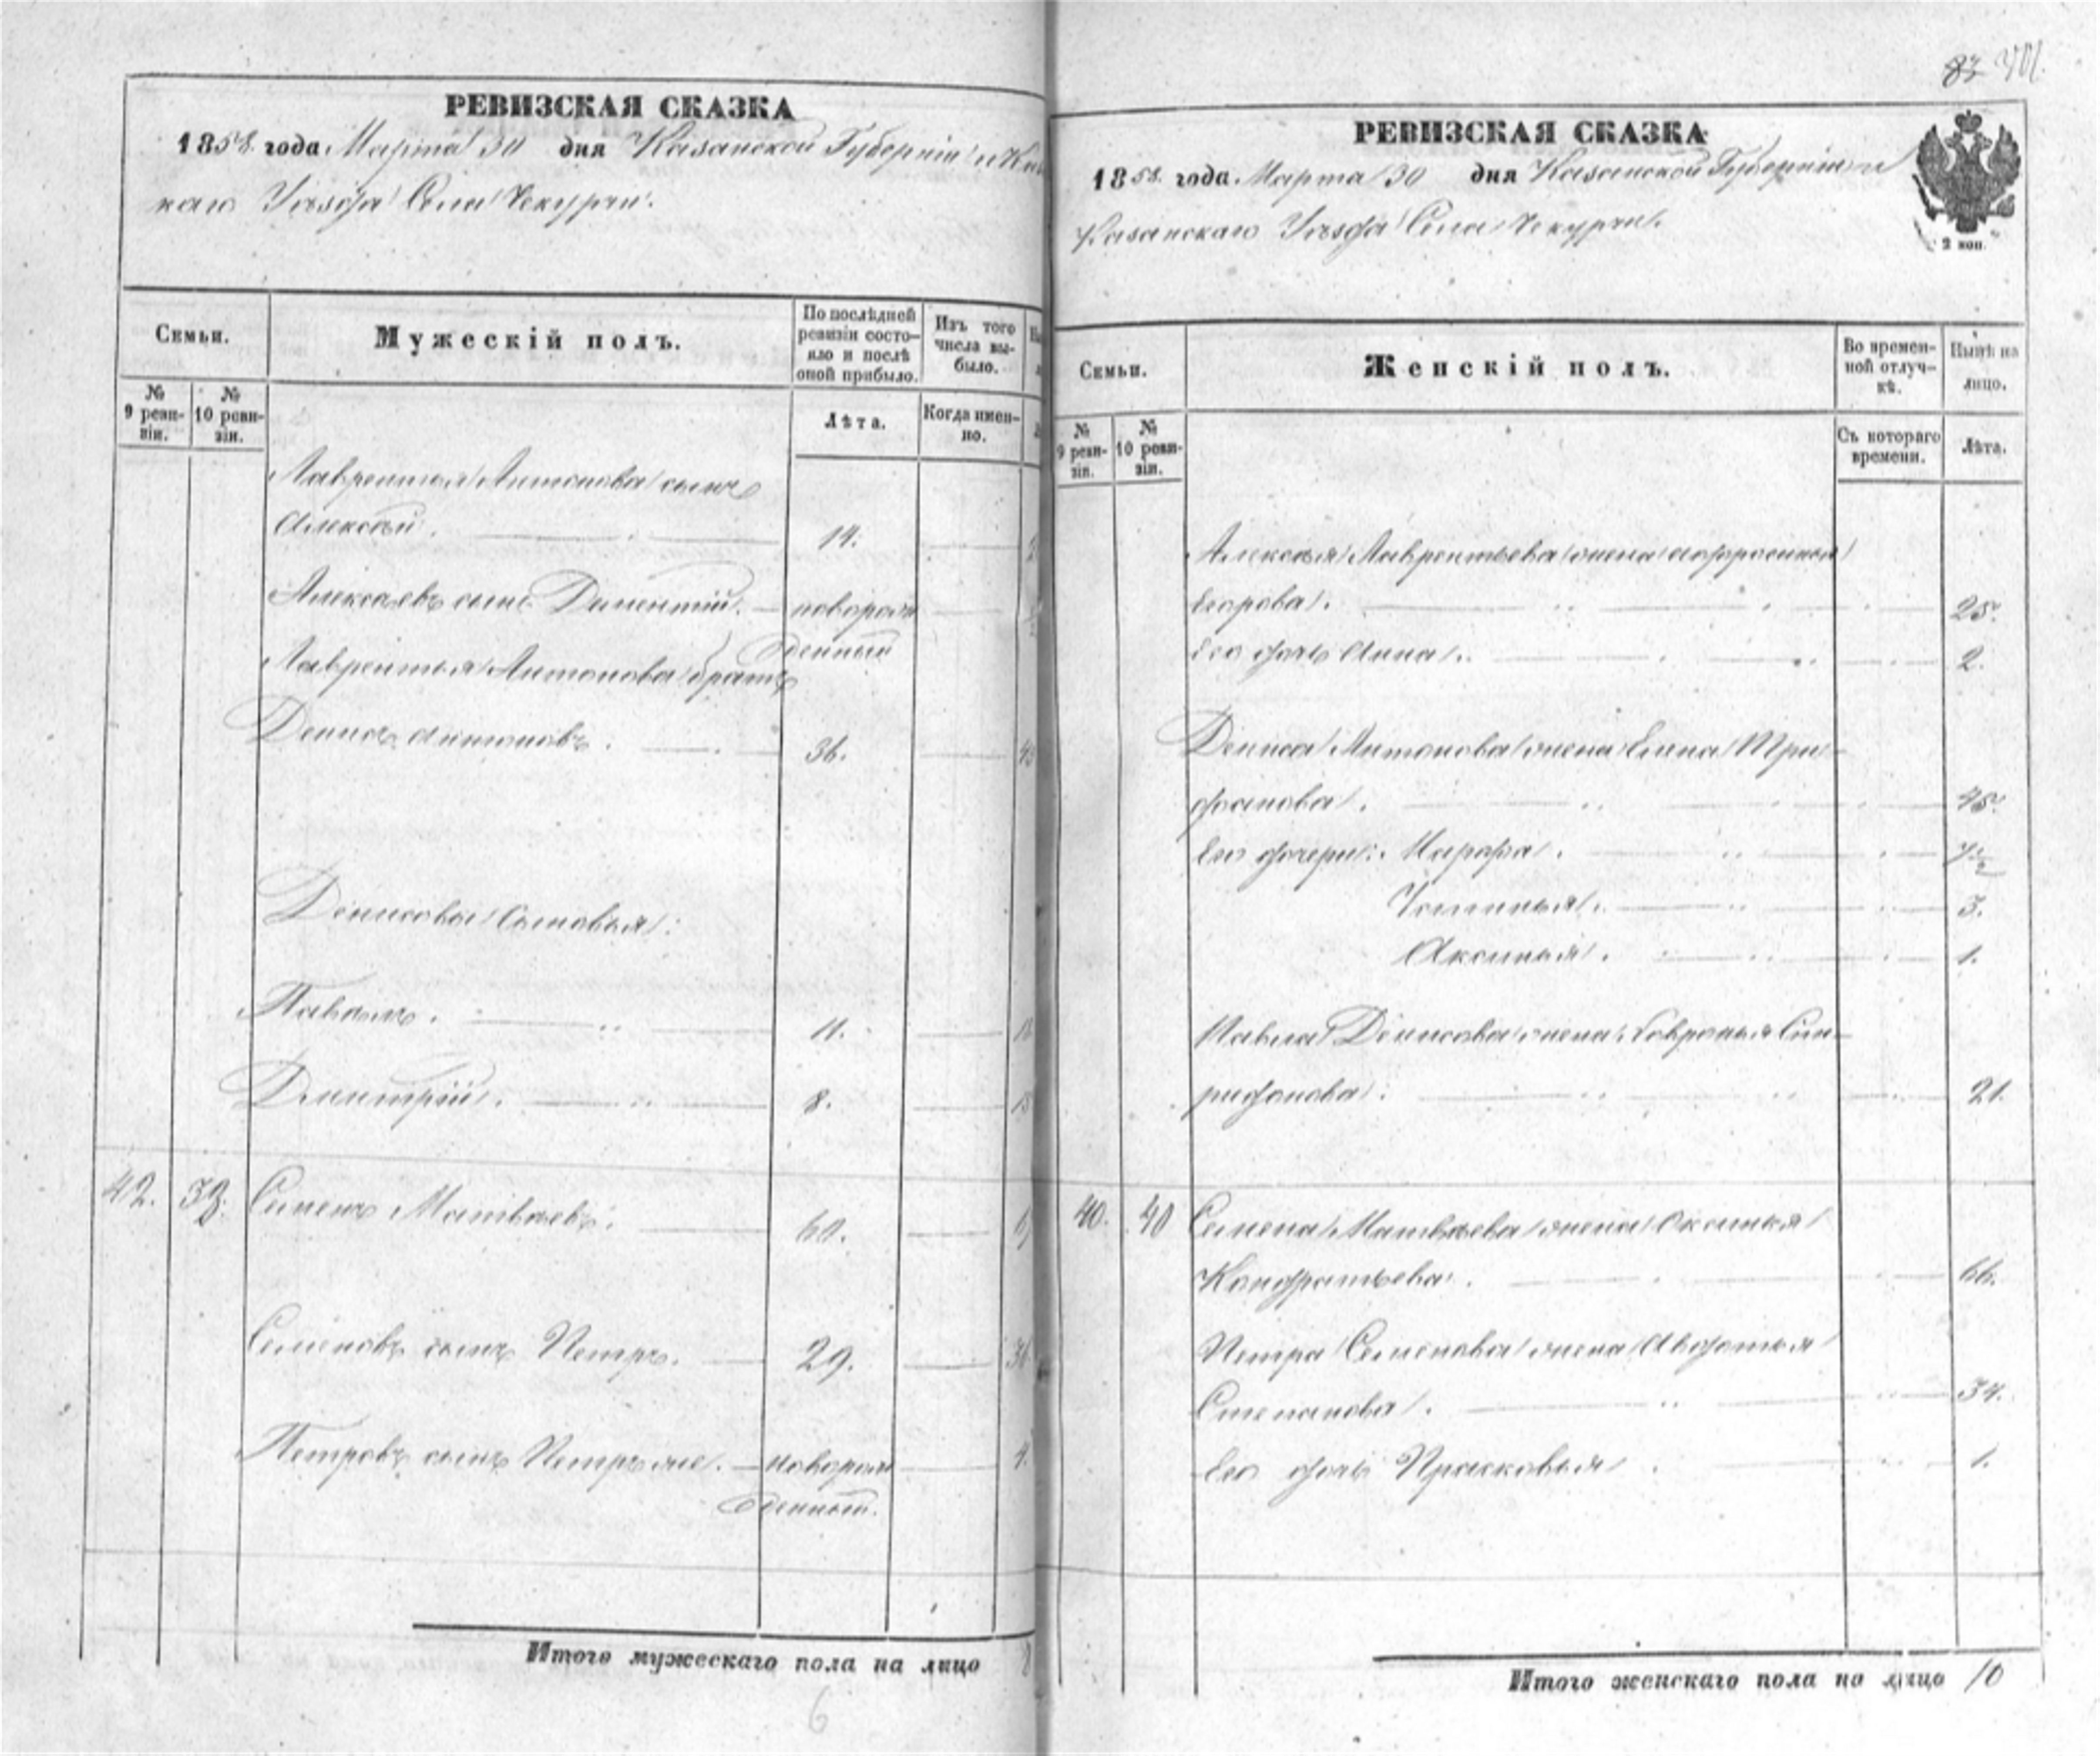 83
РЕВИЗСКАЯ СКАЗКА
1858. года Марта 30 дня Казанской Губерніи и
каго Уѣзда Села Чекурчи.
Семьи.
Мужескій полъ.
По послѣдней ревизіи состо-
яло и послѣ
оной прибыло.
Изъ того
числа вы-
было.
№
9 реви-
зіи.
№
10 реви-
зіи.
Лѣта.
Когда имен-
но.
Лаврентья Антонова сынъ
Алексѣй. 14.
Алексѣевъ сынъ Дементій. новорож
денный
Лаврентья Антонова братъ
Денисъ Антоновъ. 36.
Денисовы сыновья:
Павелъ. 11.
Дмитрій. 8.
42. 39. Семенъ Матвѣевъ. 60.
Семеновъ сынъ Петръ. 29. 36
Петровъ сынъ Петръ же. новорож
денный.
Итого мужескаго пола на лицо 8
6
РЕВИЗСКАЯ СКАЗКА
1858. года Марта 30 дня Казанской Губерніи и
Казанскаго Уѣзда Села Чекурчи.
2 коп.
Семьи.
Женскій полъ.
Во времен-
ной отлуч-
кѣ.
Нынѣ на
лицо.
№
9 реви-
зіи.
№
10 реви-
зіи.
Съ котораго
времени.
Лѣта.
Алексѣя Лаврентьева жена Афросинья
Егорова. 25.
Его дочь Анна. 2.
Дениса Антонова жена Елена Три-
фанова. 45.
Его дочери: Марфа. 7½
Устинья. 3.
Аксинья. 1.
Павла Денисова жена Февронья Спи-
ридонова. 21.
40. 40 Семена Матвѣева жена Оксинья
Кондратьева. 66.
Петра Семенова жена Авдотья
Степанова. 34.
Его дочь Прасковья 1.
Итого женскаго пола на лицо 10